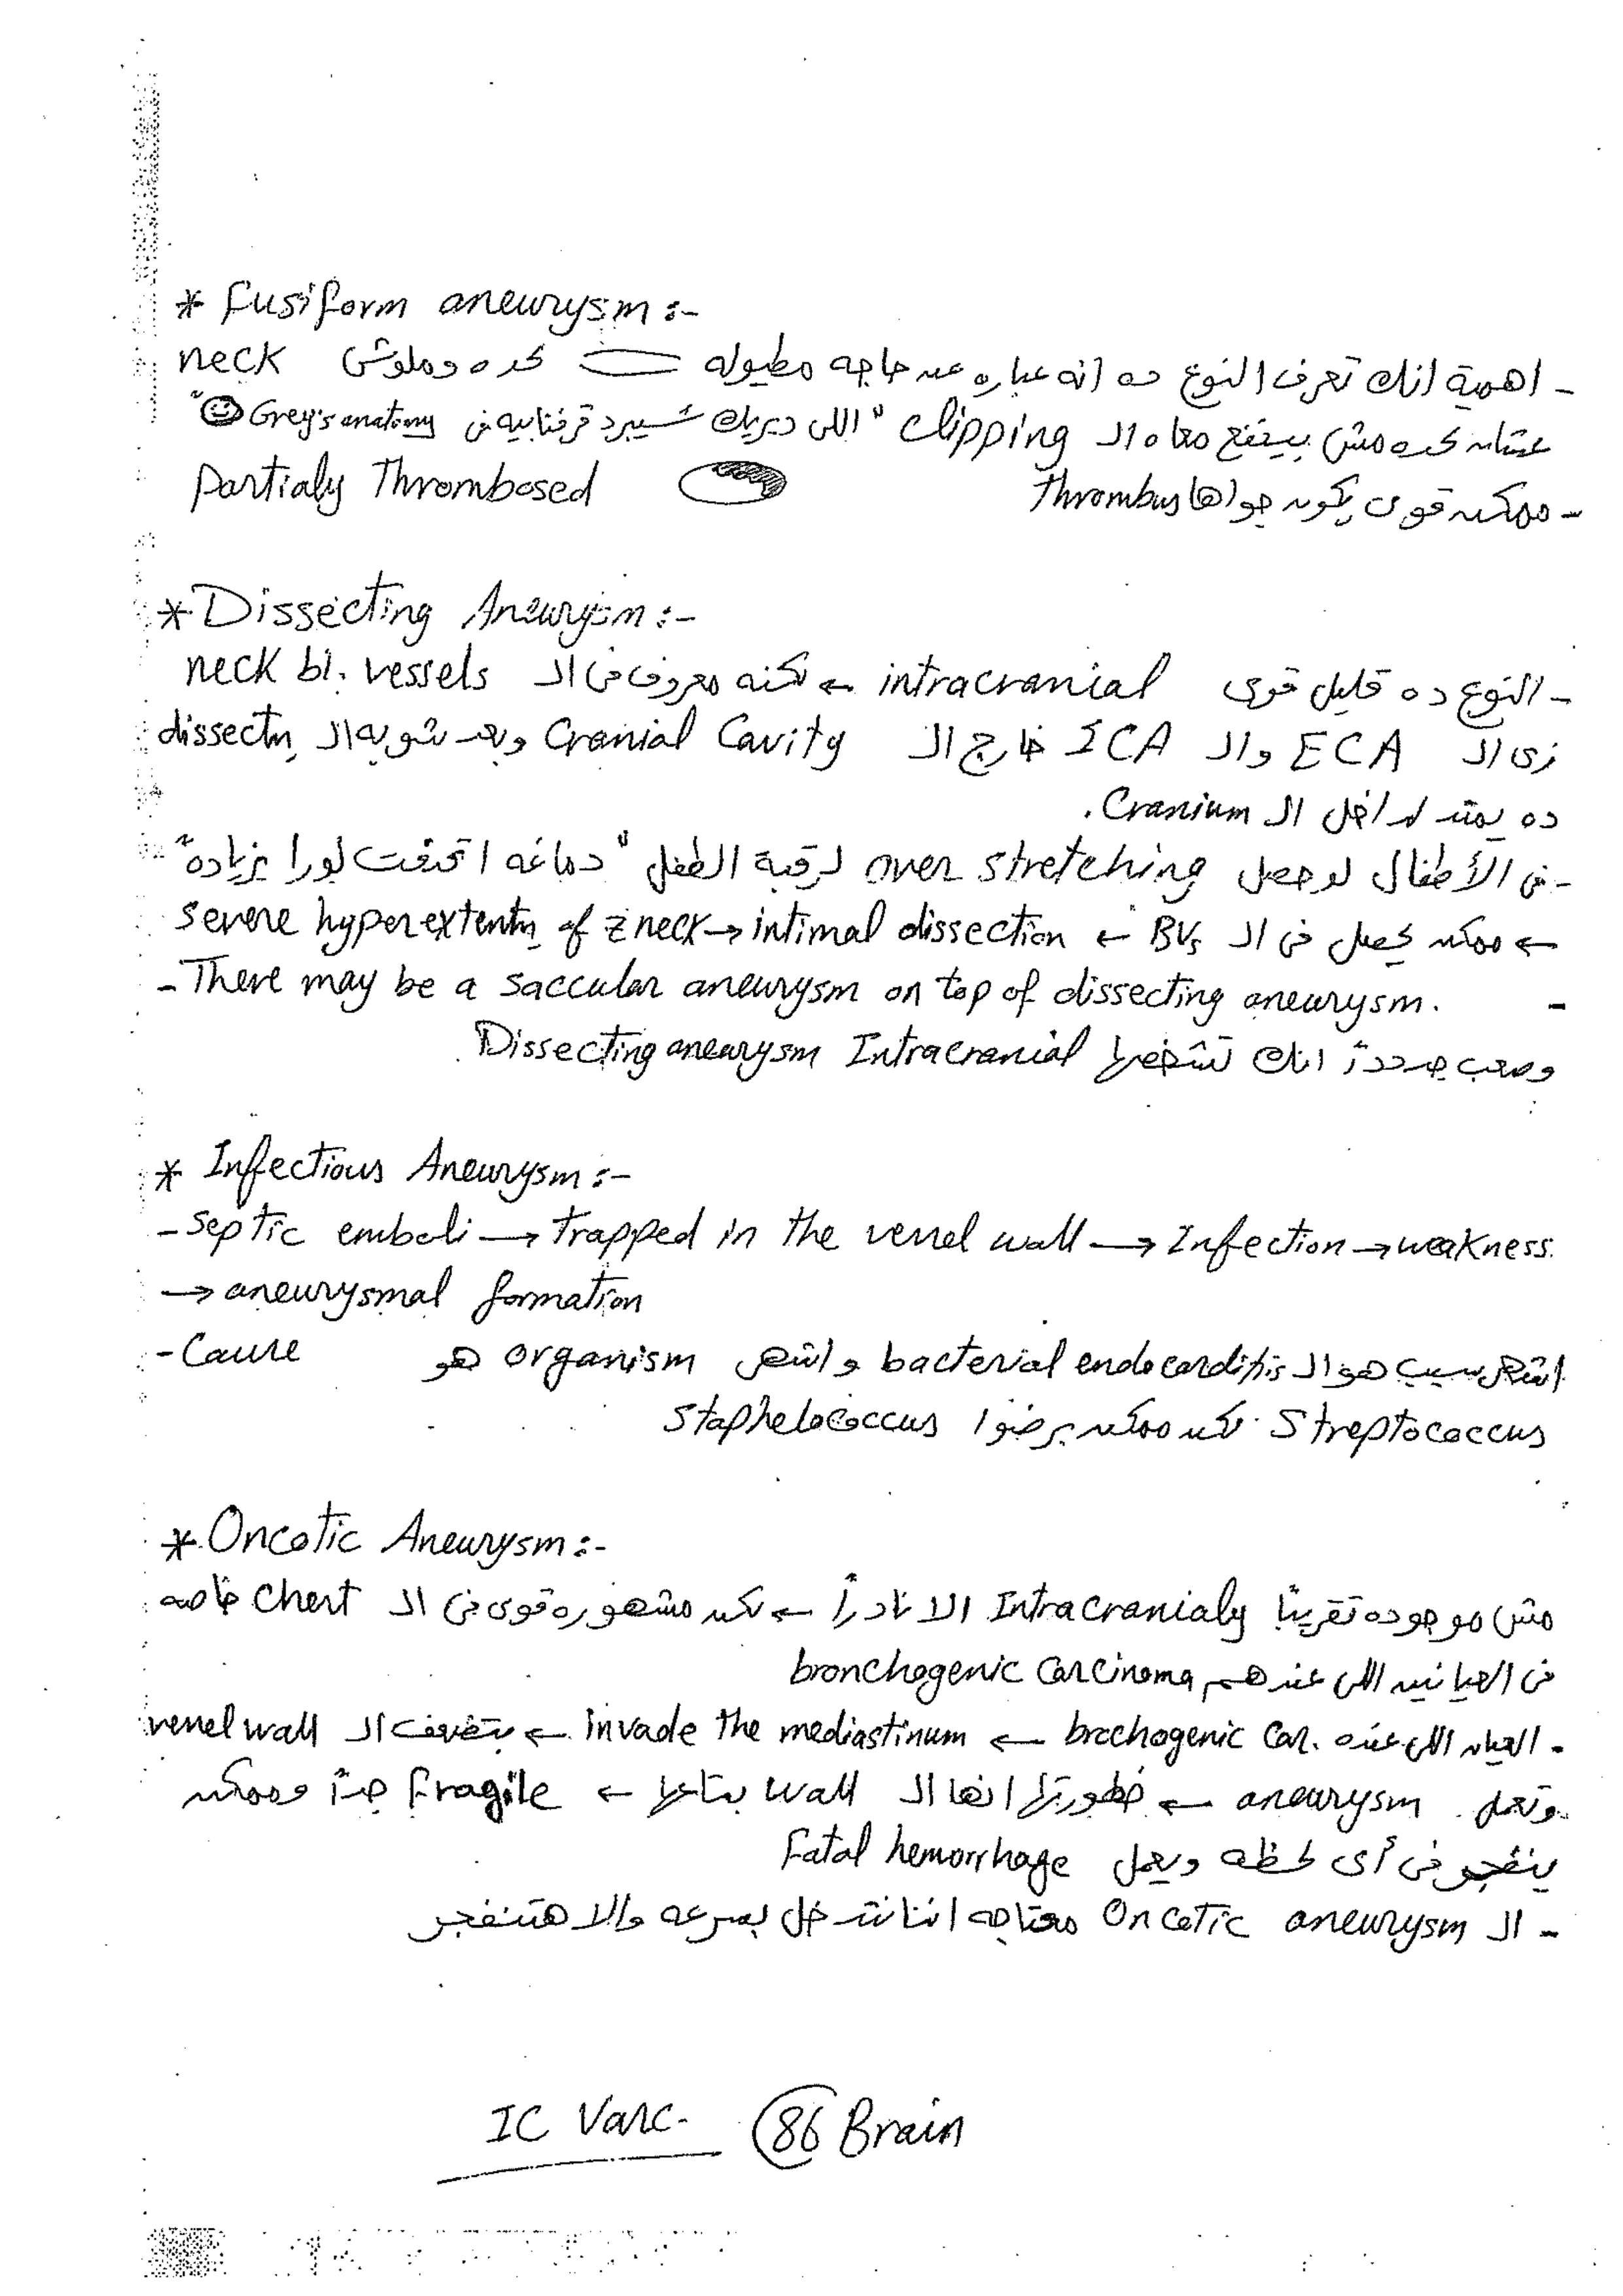 * Fusiform aneurysm :-
- اهمية انك تعرف النوع ده انه عباره عن حاجه مطيوله كده وملوش neck
عشان كده مش بينفع معاه الـ clipping "اللى ديريك شيبرد قرفنا بيه فى Grey's anatomy"
- ممكن قوى يكون جواها Thrombus Partialy Thrombosed
* Dissecting Aneurysm :-
- النوع ده قليل قوى intracranial ← لكنه معروف فى الـ neck bl. vessels
زى الـ ECA والـ ICA خارج الـ Cranial Cavity وبعد شويه الـ dissectn
ده يمتد لداخل الـ Cranium.
- فى الأطفال لو حصل over stretching لرقبة الطفل "دماغه اتحدفت لورا بزياده"
← ممكن يحصل فى الـ BVs ← severe hyperextentn of z neck → intimal dissection
- There may be a saccular aneurysm on top of dissecting aneurysm. -
وصعب جدداً انك تشخصها Dissecting aneurysm Intracranial
* Infectious Aneurysm :-
- septic emboli → trapped in the vessel wall → Infection → weakness
→ aneurysmal formation
- Cause اشهر سبب هو الـ bacterial endocarditis واشهر organism هو
Streptococcus لكن ممكن برضوا Staphelococcus
* Oncotic Aneurysm :-
مش موجوده تقريباً Intracranialy الا نادراً ← لكن مشهوره قوى فى الـ Chest خاصه
فى العيانين اللى عندهم bronchogenic carcinoma
- العيان اللى عنده brochogenic car. ← invade the mediastinum ← بتضعف الـ vessel wall
وتعمل aneurysm ← خطورتها انها الـ wall بتاعها ← fragile جداً وممكن
ينفجر فى أى لحظه ويعمل Fatal hemorrhage
- الـ Oncotic aneurysm محتاجه اننا نتدخل بسرعه والا هتنفجر
IC Vasc. 86 Brain